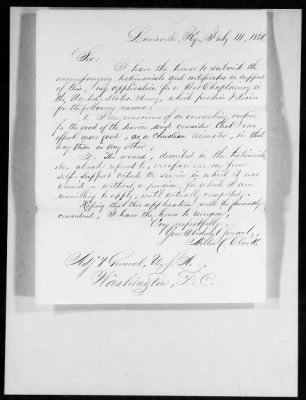 Louisville, Ky., July 1st, 186
Sir:
I have the honor to submit the
accompanying testimonials and certificates in support
of this, my application for a Post Chaplaincy in
the United States Army, which position I desire
for the following reasons:
1. I am conscious of an consuming
for the good of the Service and consider that I can
effect more good, as a Christian minister, in this
way than in any other;
2. The wound, described in the testimonials,
when already referred to, incapacitates me from
self-support outside the service in which it was
received – without a pension, for which I am
unwilling to apply, until actually compelled.
Hoping that this application will be favorably
considered, I have the honor to remain,
Very respectfully
Your Obedient Servant,
C. Clark
Adj't General, U. S. A.
Washington, D. C.